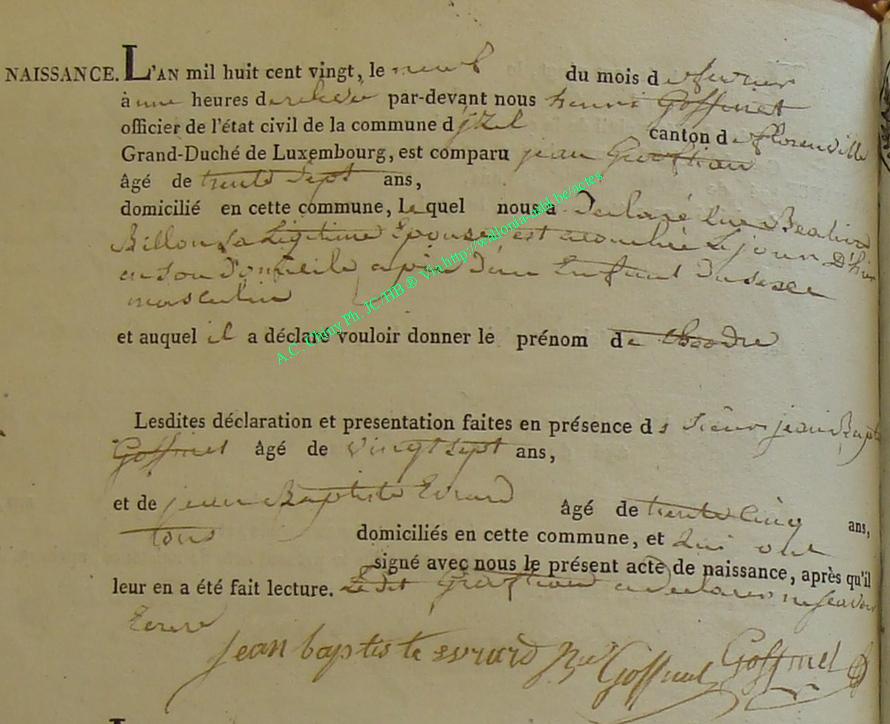 NAISSANCE. L'AN mil huit cent vingt, le neuf du mois de fevrier
à une heures de relevée par-devant nous henri Goffinet
officier de l'état civil de la commune d jzel canton de florenville
Grand-Duché de Luxembourg, est comparu jean
âgé de trente sept ans,
domicilié en cette commune, Lequel nous a declaré que Beatrix
Billon sa Legitime Epouse est accouchée Le jour D'hier
en son Domicile d'un Enfant du sexe
masculin
et auquel il a déclaré vouloir donner le prénom de theodre
Lesdites déclaration et presentation faites en présence ds sieurs jean Bapte
Goffinet âgé de vingt sept ans,
et de jean Baptiste Evrard âgé de trente cinq ans,
tous domiciliés en cette commune, et qui ont
signé avec nous le présent acte de naissance, après qu'il
leur en a été fait lecture. Le dit a declarer ne scavoir
Ecrire
jean baptiste evrard Goffinet Goffinet
A.C. Chiny Ph. JC HB ® Via http://wallonia-asbl.be/actes